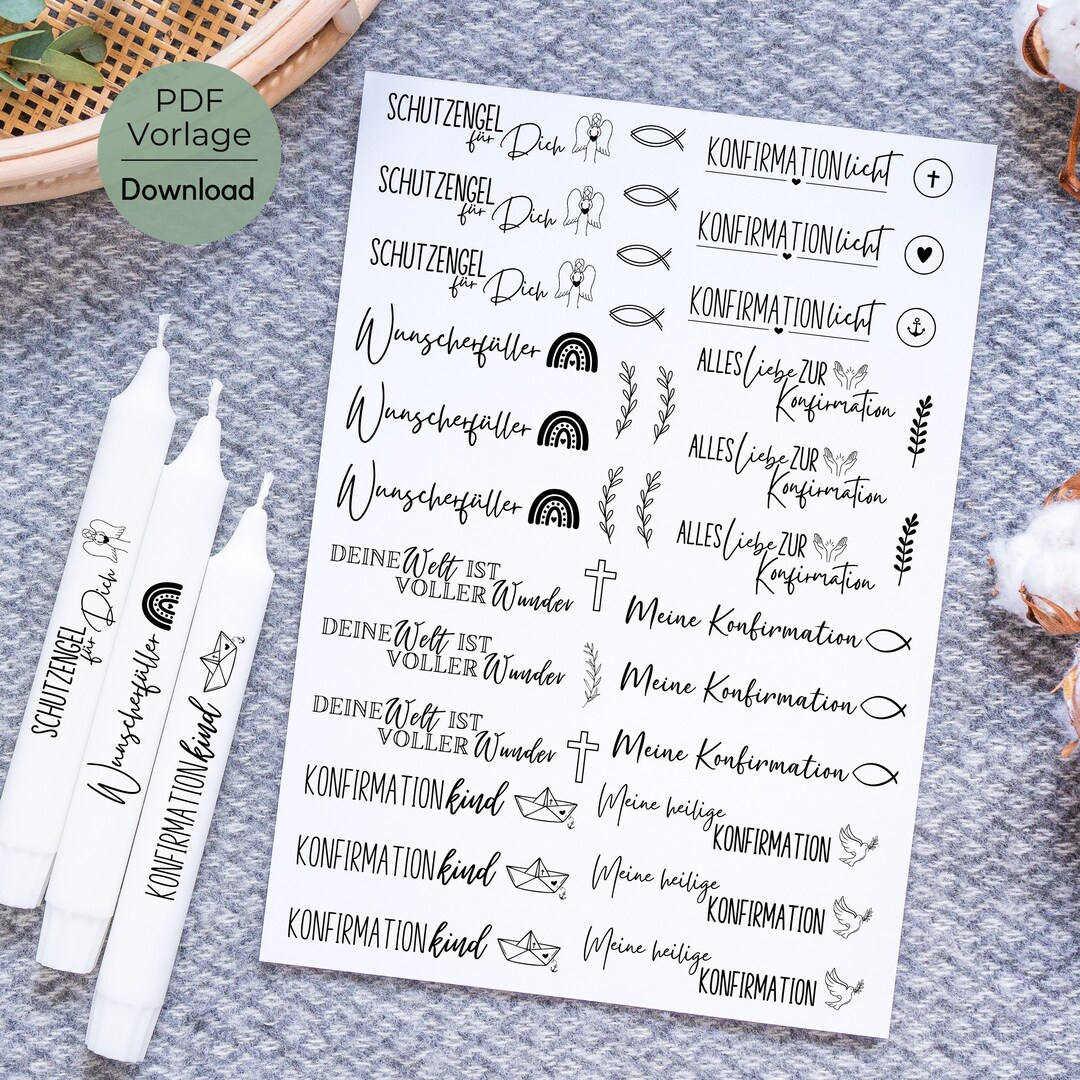 PDF
Vorlage
Download
SCHUTZENGEL
für Dich
SCHUTZENGEL
für Dich
SCHUTZENGEL
für Dich
Wunscherfüller
Wunscherfüller
Wunscherfüller
DEINE Welt IST
VOLLER Wunder
DEINE Welt IST
VOLLER Wunder
DEINE Welt IST
VOLLER Wunder
KONFIRMATIONkind
KONFIRMATIONkind
KONFIRMATIONkind
KONFIRMATIONlicht
KONFIRMATIONlicht
KONFIRMATIONlicht
ALLES Liebe ZUR
Konfirmation
ALLES Liebe ZUR
Konfirmation
ALLES Liebe ZUR
Konfirmation
Meine Konfirmation
Meine Konfirmation
Meine Konfirmation
Meine heilige
KONFIRMATION
Meine heilige
KONFIRMATION
Meine heilige
KONFIRMATION
SCHUTZENGEL
für Dich
Wunscherfüller
KONFIRMATIONkind